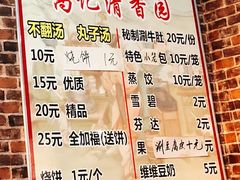 高记清香园
不翻汤 丸子汤 秘制涮牛肚 20元/份
10元 烧饼 1元 特色小笼包 10元/笼
15元 优质 蒸饺 10元/笼
20元 精品 雪碧 2元
25元 全加福(送饼) 芬达 2元
果 涮豆腐皮十元
烧饼 1元/个 维维豆奶 5元